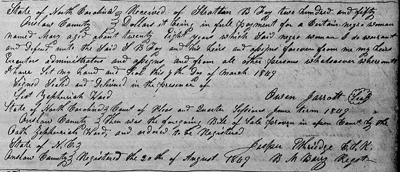 State of North Carolina } Received of Heathan B Foy two hundred and fifty
Onslow County } Dollars it being in full payment for a Certain negro woman
named Mary aged about twenty Eight years which Said negro woman I do warrant
and defend unto the Said B Foy and his heirs and assigns forever from me my heirs
Executors administrators and assigns and from all other persons whatsoever whereunto
I have Set my Hand and Seal this 9th day of March 1849
Signed Sealed and Delivered in the presence of
Test Zephaniah Ward Owen Jarrott (Seal)
State of North Carolina } Court of Pleas and Quarter Sessions June term 1849
Onslow County } Then was the foregoing Bill of Sale proven in open Court by the
Oath Zephaniah Ward, and ordered to be Registered
Jasper Etheridge C.C.C.
State of N.C. }
Onslow County } Registered the 20th of August 1849 B. M. Barry Regst